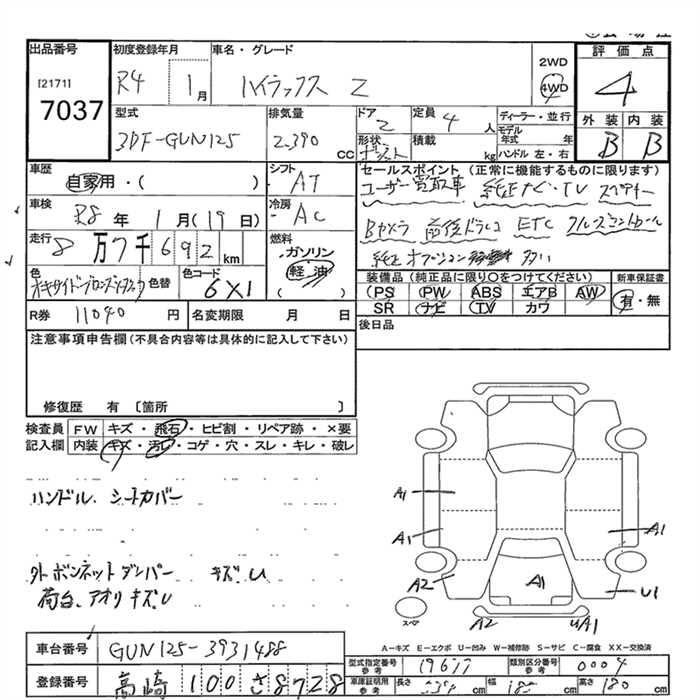 出品番号 初度登録年月 車名・グレード 評価点
[2171] R4 1月 ハイラックス Z 2WD 4WD 4
7037
型式 排気量 ドア 定員 ディーラー・並行 外装 内装
3DF-GUN125 2.390 CC 2 4人 モデル年式 年 B B
形状 積載 kg ハンドル 左・右
車歴 シフト セールスポイント (正常に機能するものに限ります)
自家用・( ) AT ユーザー買取車 純正ナビ・TV
車検 R8年 1月(19日) 冷房 AC Bカメラ 前後ドラレコ ETC クルーズコントロール
走行 8万7千692km 燃料 ガソリン 軽油 ( ) 純正オプション
色 色替 色コード 6X1 装備品 (純正品に限り○をつけてください) 新車保証書
PS PW ABS エアB AW 有・無
SR ナビ TV カワ
R券 11040円 名変期限 月 日 後日品
注意事項申告欄(不具合内容等は具体的に記入して下さい)
修復歴 有 〔箇所 〕
検査員 FW キズ・飛石・ヒビ割・リペア跡・×要
記入欄 内装 キズ・汚レ・コゲ・穴・スレ・キレ・破レ
ハンドル、シートカバー
外 ボンネットダンパー キズU
荷台、アオリキズU
A1
A1 A1
A2 A1 U1
スペア A2 UA1
A-キズ E-エクボ U-凹み W-補修跡 S-サビ C-腐食 XX-交換済
車台番号 GUN125-3931488
型式指定番号 参考 19677 類別区分番号 参考 0004
登録番号 高崎 100 さ 8728
車庫証明用 参考 長さ cm 幅 cm 高さ 180 cm